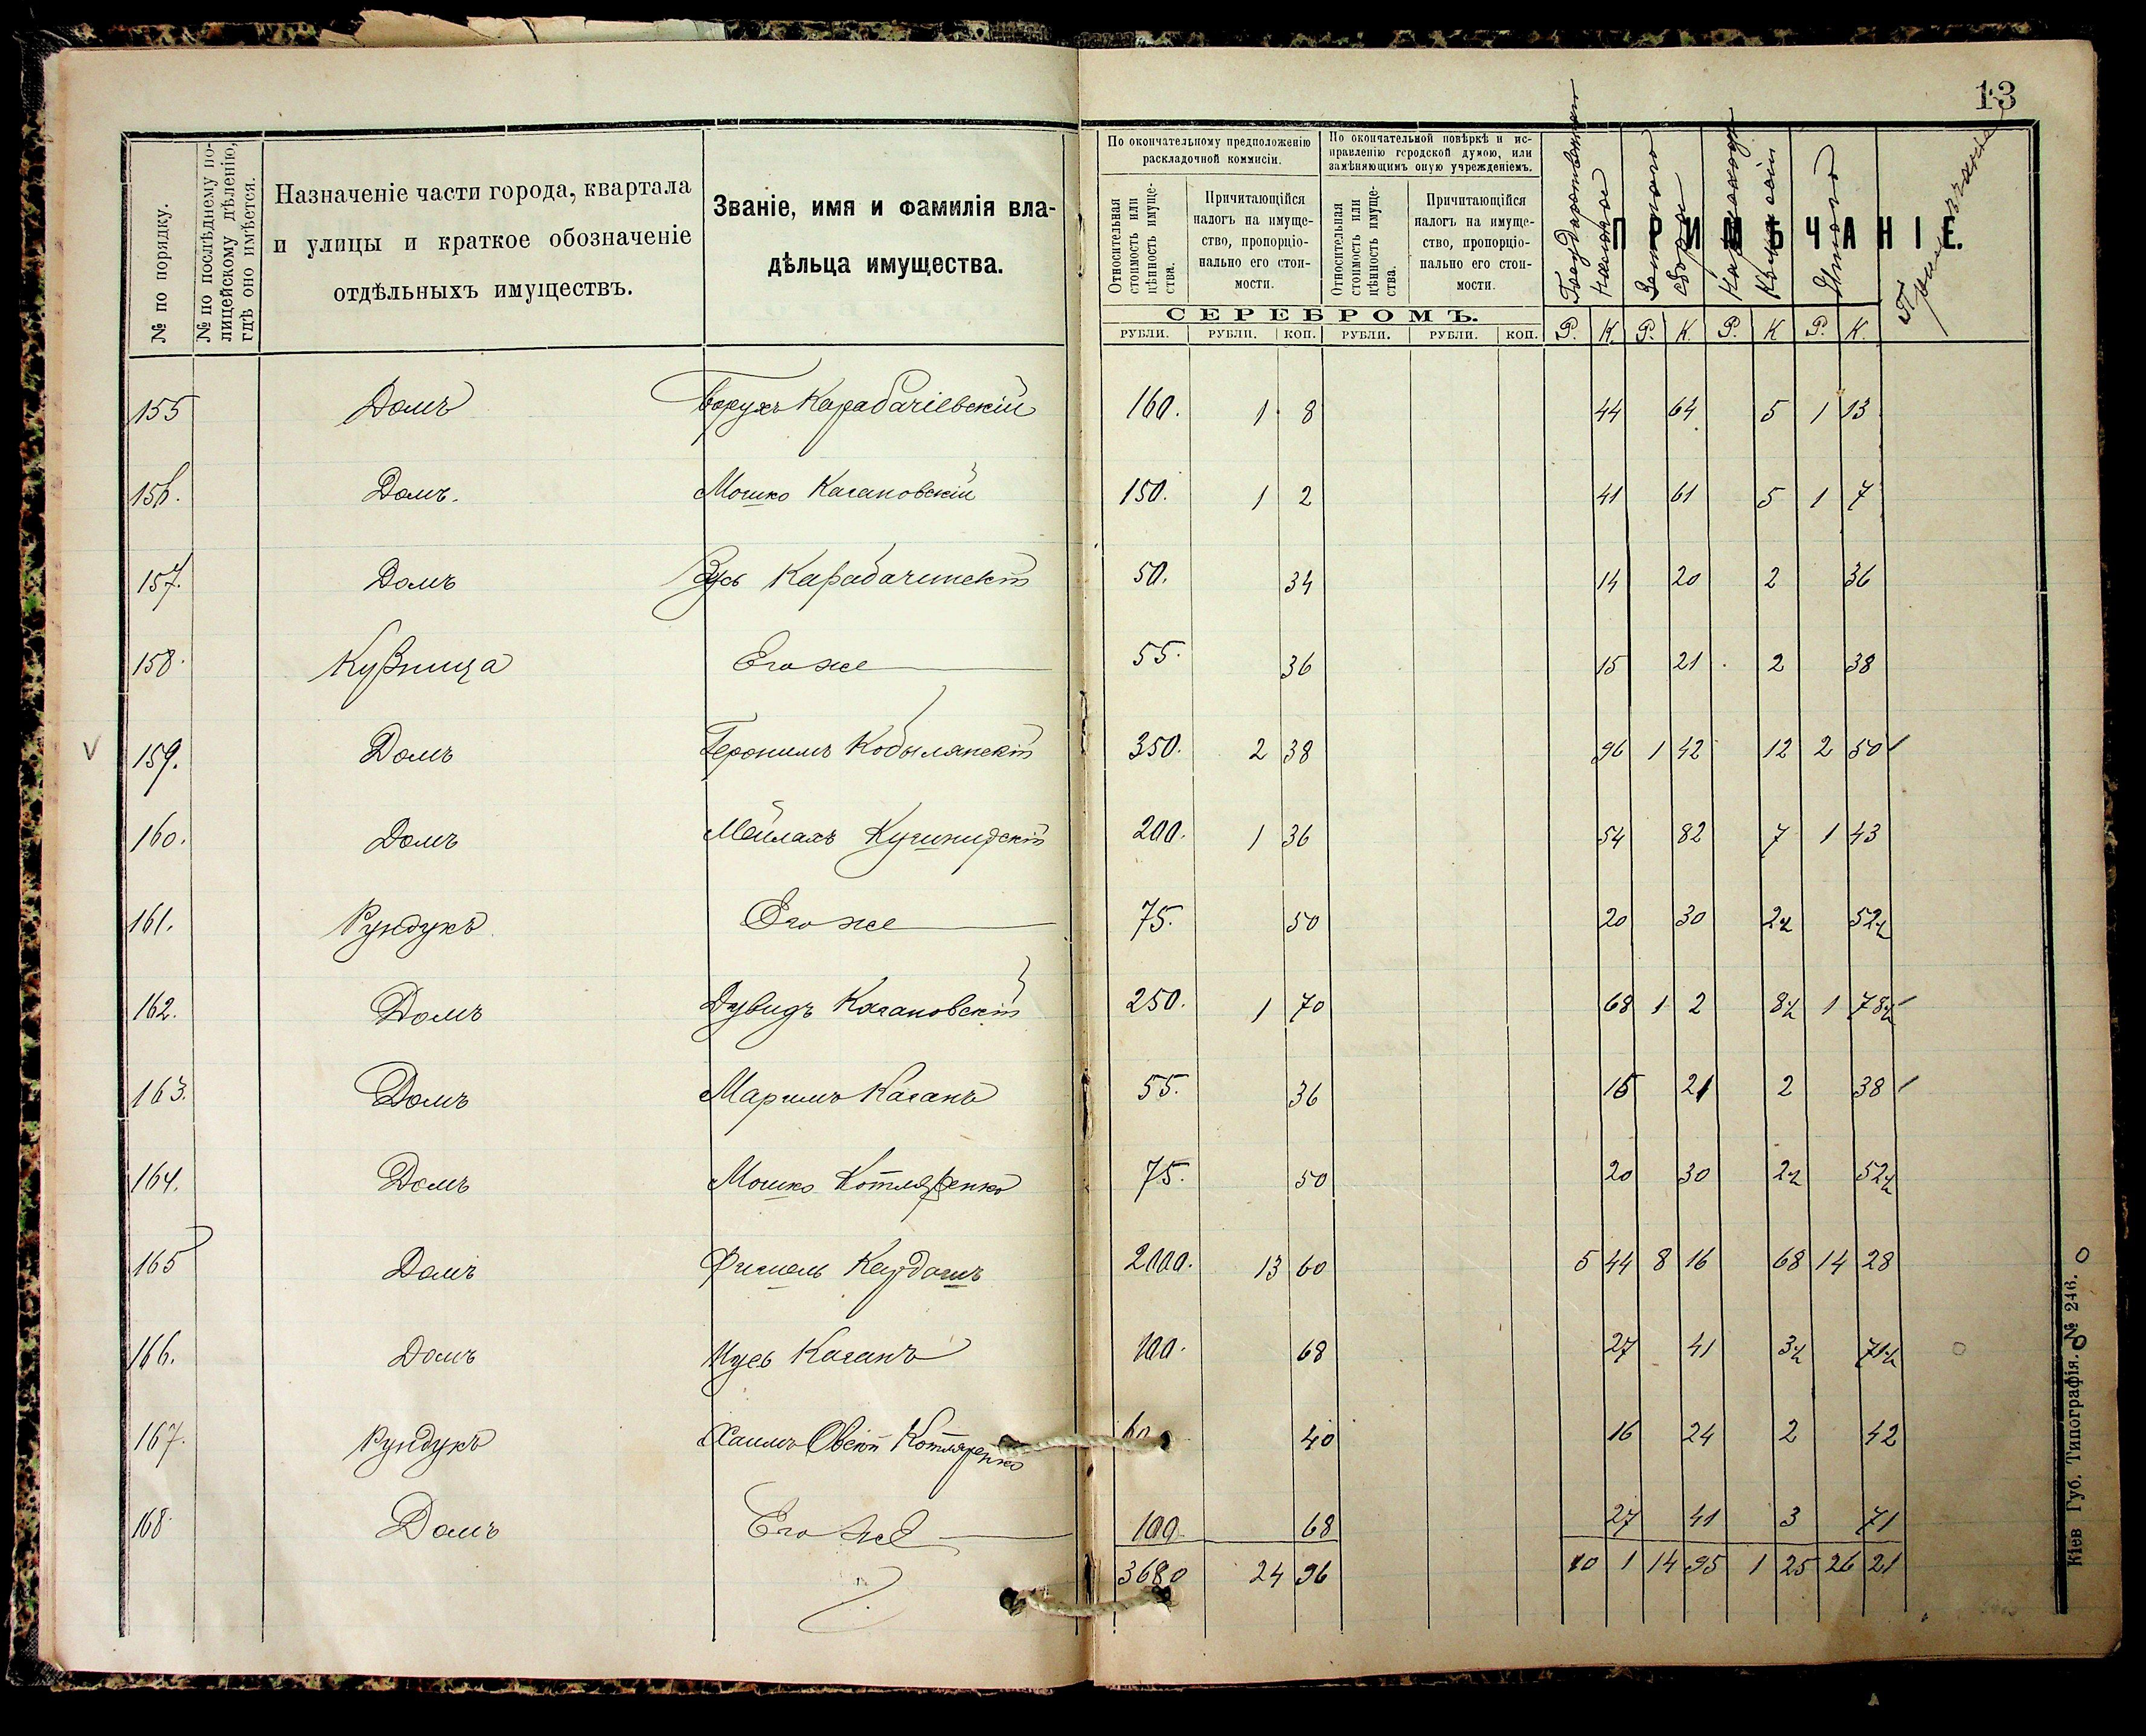 13
№ по порядку.
№ по послѣднему по-
лицейскому дѣленію,
гдѣ оно имѣется.
Назначеніе части города, квартала
и улицы и краткое обозначеніе
отдѣльныхъ имуществъ.
Званіе, имя и фамилія вла-
дѣльца имущества.
По окончательному предположенію
раскладочной коммисіи.
По окончательной повѣркѣ и ис-
правленію городской думою, или
замѣняющимъ оную учрежденіемъ.
Относительная
стоимость или
цѣнность имуще-
ства.
Причитающійся
налогъ на имуще-
ство, пропорціо-
нально его стои-
мости.
Относительная
стоимость или
цѣнность имуще-
ства.
Причитающійся
налогъ на имуще-
ство, пропорціо-
нально его стои-
мости.
ПРИМѢЧАНІЕ.
Земскаго
сбора
Итого
СЕРЕБРОМЪ.
РУБЛИ. РУБЛИ. КОП. РУБЛИ. РУБЛИ. КОП. Р. К. Р. К. Р. К Р. К.
155 Домъ Борухъ Карабачіевскій 160. 1 8 44 64 5 1 13
156. Домъ. Мошко Кагановскій 150. 1 2 41 61 5 1 7
157. Домъ Зусь Карабачинскій 50. 34 14 20 2 36
158. Кузница Его же 55. 36 15 21 2 38
V 159. Домъ Іеронимъ Кобылянскій 350. 2 38 96 1 42 12 2 50
160. Домъ Мейлахъ Кушнирскій 200. 1 36 54 82 7 1 43
161. Рундукъ Его же 75. 50 20 30 2½ 52½
162. Домъ Дувидъ Кагановскій 250. 1 70 68 1 2 8½ 1 78½
163. Домъ Маримъ Каганъ 55. 36 15 21 2 38
164. Домъ Мошко Котляренко 75. 50 20 30 2½ 52½
165 Домъ Фишель Кардашъ 2000. 13 60 5 44 8 16 68 14 28
166. Домъ Мусь Каганъ 100. 68 27 41 3½ 71½
167. Рундукъ Хаимъ Овсій Котляренко 60 40 16 24 2 42
168 Домъ Его же 100 68 27 41 3 71
3680 24 96 10 1 14 95 1 25 26 21
Кіев Губ. Типографія. № 246.